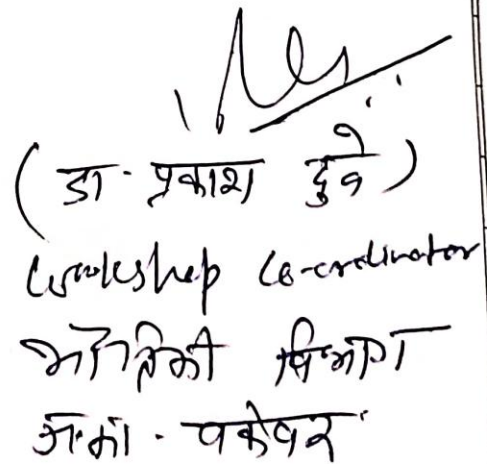 (डा. प्रकाश दुबे)
Workshop Co-ordinator
भौतिकी विभाग
ज.म. वकेवर